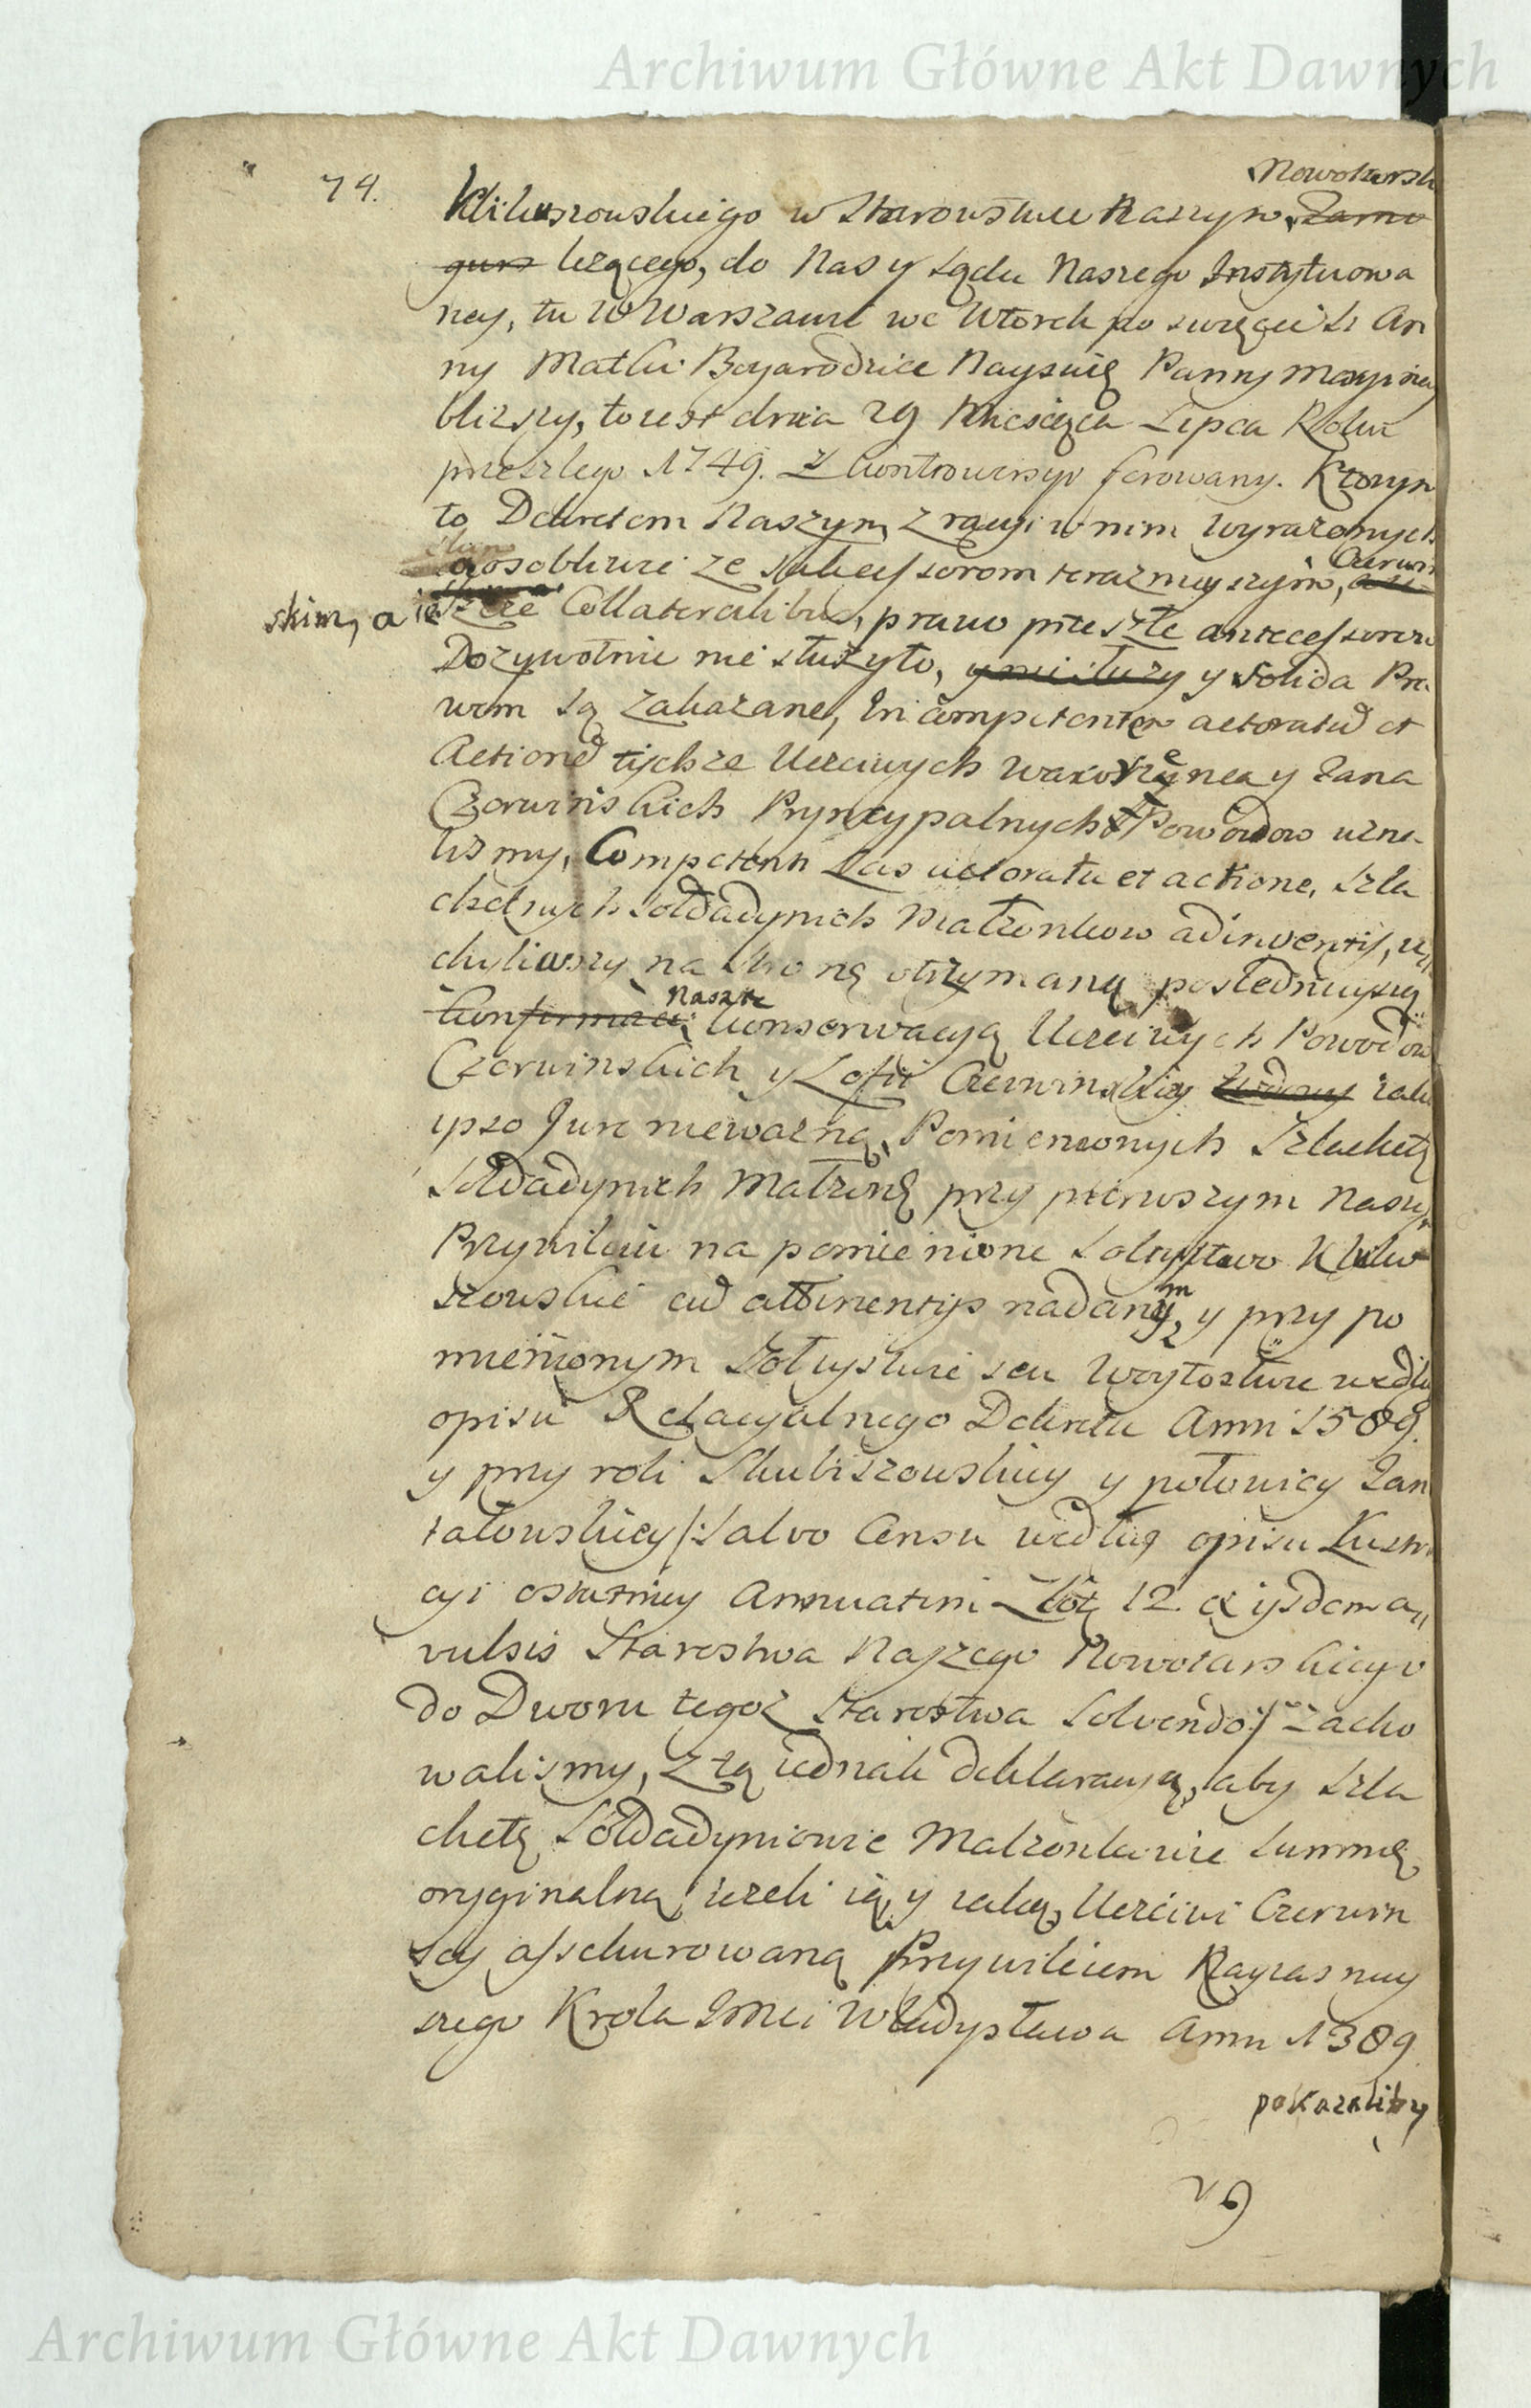 Archiwum Główne Akt Dawnych
74.
Nowotarsk
Kliluszowskiego w Starostwie Naszym, Zamo
gurs lezącego, do Nas y Sądu Naszego Instytuowa
ney, tu w Warszawie we Wtorek po swięcie S. An
ny Matki Bogarodzice Nayswię Panny Maryi nay
blizszy, to iest dnia 29 Miesiąca Lipca Roku
przeszlego 1749. z kontrowersyi ferowany. Ktorym
to Dekretem Naszym z racyi w nim wyrazonych
a osobliwie ze Sukcessorom teraznieyszym, Czerwin
skim, a ieszcze Collateralibus, prawo przeszłe antecessorom
Dozywotnie nie służyło, y nie służy y Solida Pra
wem są zakazane, Incompetentem actoratū et
Actionē tychze Uczciwych Wawrzenca y Jana
Czerwinskich Pryncypalnych Powodow uzna-
lismy, Competenti zas actoratu et actione, Szla
chetnych Soldadynich Małzonkow adinventis, u
chyliwszy na stronę otrzymaną poslednieyszą
Konfirmacię Naszę konserwacyą Uczciwych Powodow
Czerwinskich y Zofii Czerwinskiey wdowy iako
ipso Jure niewazną, Pomienionych Szlachetą
Soldadynich Małzonę przy pierwszym Naszy
Przywileiu na pomienione Soltystwo Kluw
szowskie cū attinentijs nadanym, y przy po
mienionym Sołtystwie seu Woytostwie według
opisu Relacyalnego Dekretu Anni 1589.
y przy roli Skubiszowskiey y połowicy Zan
tałowskiey /: Salvo Censu według opisu Lustra
cyi ostatniey Annuatim Złotę 12 ex ijsdem a
vulsis Starostwa Naszego Nowotarskiego
do Dworu tegoz Starostwa Solvendo :/ Zacho
walismy, z tą iednak deklaracyą, aby Szla
chetę Soldadyniowie Malzonkowie Summę
oryginalną, iezeli ią, y iaką, Uczciwi Czerwin
scy assekurowaną Przywileiem Nayiasniey
szego Krola Jmci Władysława Anni 1389.
pokazaliby
Archiwum Główne Akt Dawnych